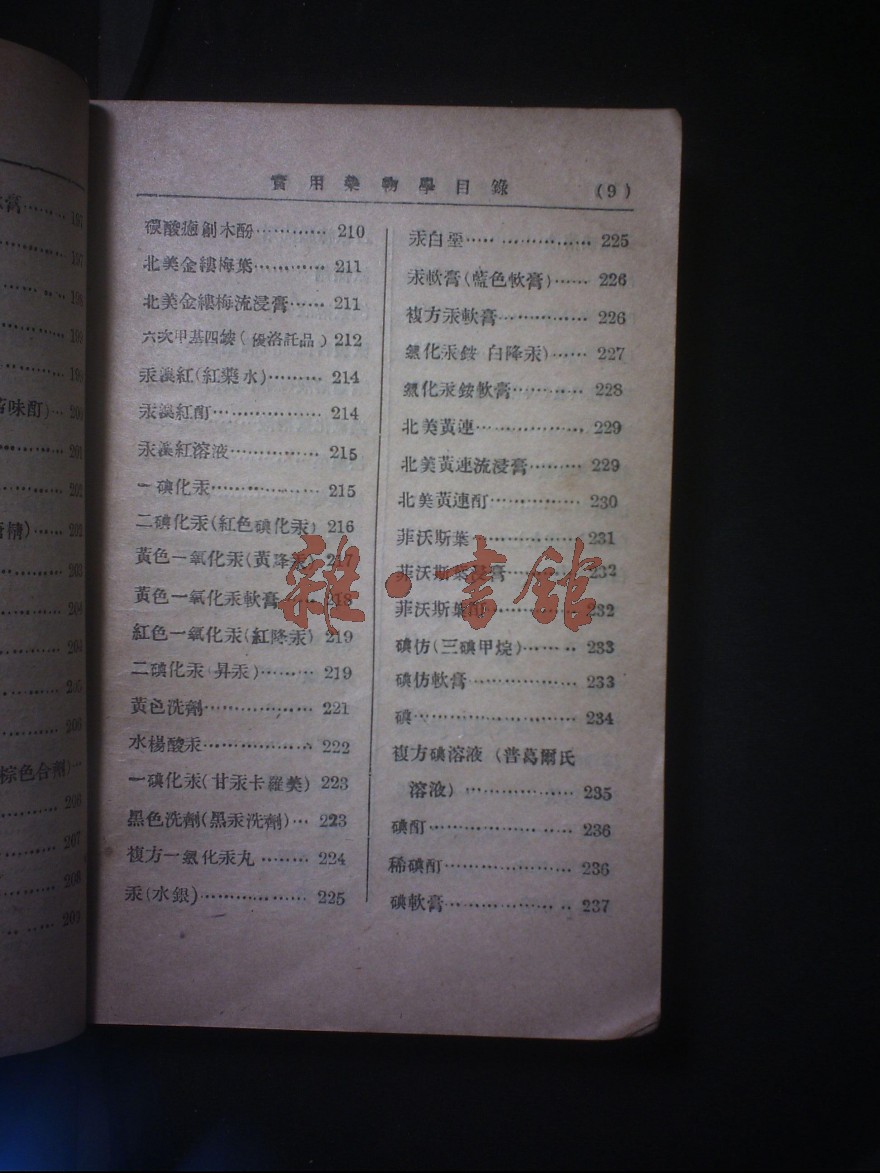 實用藥物學目錄 (9)
磺酸癒創木酚………… 210
北美金縷梅葉………… 211
北美金縷梅流浸膏…… 211
六次甲基四銨(優洛託品) 212
汞溴紅(紅藥水)……… 214
汞溴紅酊……………… 214
汞溴紅溶液…………… 215
一碘化汞……………… 215
二碘化汞(紅色碘化汞) 216
黃色一氧化汞(黃降汞) 217
黃色一氧化汞軟膏…… 218
紅色一氧化汞(紅降汞) 219
二碘化汞 昇汞)……… 219
黃色洗劑……………… 221
水楊酸汞……………… 222
一碘化汞(甘汞卡羅美) 223
黑色洗劑(黑汞洗劑)… 223
複方一氯化汞丸 ……… 224
汞(水銀)……………… 225
汞白堊………………… 225
汞軟膏(藍色軟膏)…… 226
複方汞軟膏…………… 226
氯化汞銨 白降汞)…… 227
氯化汞銨軟膏………… 228
北美黃連……………… 229
北美黃連流浸膏……… 229
北美黃連酊…………… 230
菲沃斯葉……………… 231
菲沃斯葉浸膏………… 232
菲沃斯葉酊…………… 232
碘仿(三碘甲烷)……… 233
碘仿軟膏……………… 233
碘……………………… 234
複方碘溶液 (普葛爾氏
溶液) ……………… 235
碘酊…………………… 236
稀碘酊………………… 236
碘軟膏………………… 237
雜·書館
膏……… 195
197
198
198
199
味酊)… 200
201
202
)…… 202
203
204
204
205
206
棕色合劑)…
206
207
208
209